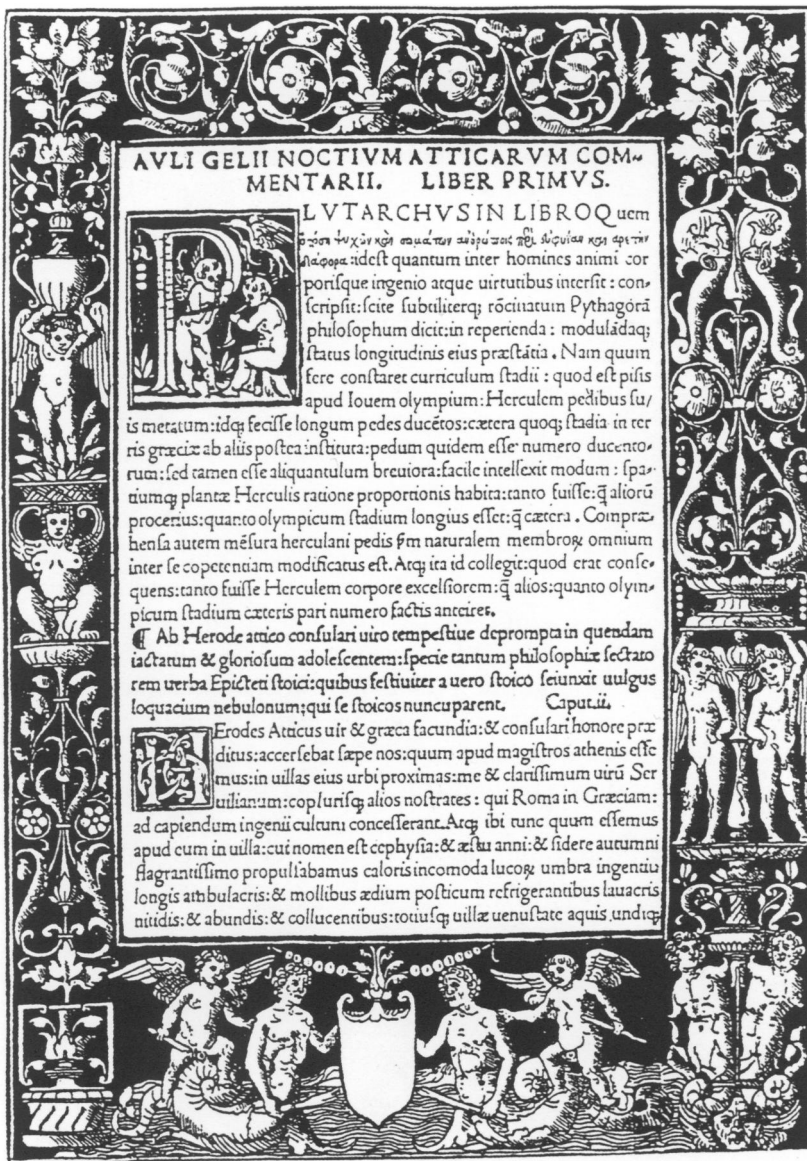 AVLI GELII NOCTIVM ATTICARVM COM-
MENTARII. LIBER PRIMVS.
PLVTARCHVS IN LIBRO Quem
ὁπόση ψυχῶν καὶ σωμάτων ἀνθρώποις περὶ εὐφυίαν καὶ ἀρετὴν
διαφορα:idest quantum inter homines animi cor
porisque ingenio atque uirtutibus intersit: con-
scripsit:scite subtiliterq; rōcinatum Pythagorā
philosophum dicit:in reperienda: modulādaq;
status longitudinis eius præstātia. Nam quum
fere constaret curriculum stadii: quod est pisis
apud Iouem olympium:Herculem pedibus su/
is metatum:idq; fecisse longum pedes ducētos:cætera quoq; stadia in ter
ris græciæ ab aliis postea instituta:pedum quidem esse numero ducento-
rum:sed tamen esse aliquantulum breuiora:facile intellexit modum: spa-
tiumq; plantæ Herculis ratione proportionis habita:tanto fuisse:q̄ aliorū
procerius:quanto olympicum stadium longius esset:q̄ cætera. Compræ-
hensa autem mēsura herculani pedis ſm naturalem membroꝝ omnium
inter se copetentiam modificatus est. Atq; ita id collegit:quod erat conse-
quens:tanto fuisse Herculem corpore excelsiorem:q̄ alios:quanto olym-
picum stadium cæteris pari numero factis anteiret.
¶ Ab Herode attico consulari uiro tempestiue deprompta in quendam
iactatum & gloriosum adolescentem:specie tantum philosophiæ sectato
rem uerba Epicteti stoici:quibus festiuiter a uero stoico seiunxit uulgus
loquacium nebulonum;qui se stoicos nuncuparent. Caput.ii.
HErodes Atticus uir & græca facundia:& consulari honore præ
ditus:accersebat sæpe nos:quum apud magistros athenis esse
mus:in uillas eius urbi proximas:me & clarissimum uirū Ser
uilianum:coplurisq; alios nostrates: qui Roma in Græciam:
ad capiendum ingenii cultum concesserant.Atq; ibi tunc quum essemus
apud eum in uilla:cui nomen est cephysia:& æstu anni:& sidere autumni
flagrantissimo propulsabamus caloris incomoda lucoꝝ umbra ingentiu
longis ambulacris:& mollibus ædium posticum refrigerantibus lauacris
nitidis:& abundis:& collucentibus:totiusq; uillæ uenustate aquis undiq;